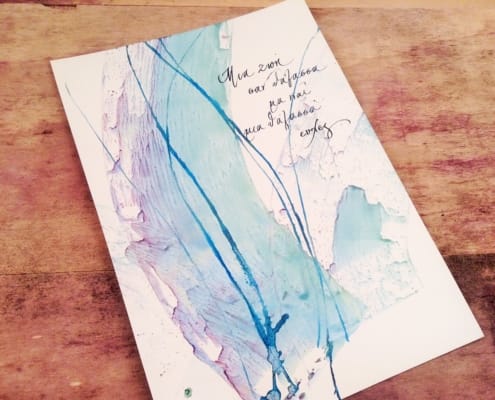 Μια ζωή
σαν θάλασσα
μα και
μια θάλασσα
ευχές